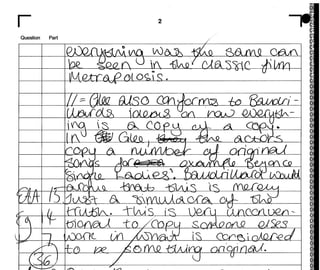 2
Question Part
everything was the same can
be seen in the classic film
Metrapolosis.
//= Glee also conforms to Baudri-
llards ideas on how everyth-
ing is a copy of a copy.
In Glee, the actors
copy a number of original
songs for example Beyonce
'Single Ladies'. Baudrillard would
EAA 15 argue that this is merely
just a simulacra of the
Eg 14 truth. This is very unconven-
tional to copy someone elses
7 work in what is considered
36 to be something original.